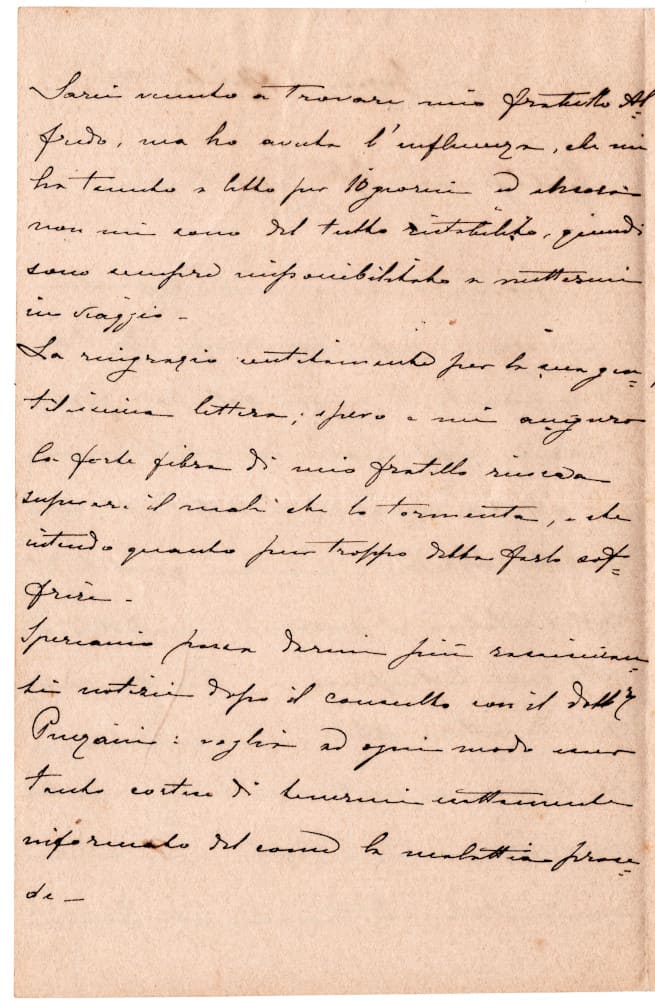 Sarei venuto a trovare mio fratello Al=
fredo, ma ho avuta l'influenza, che mi
ha tenuto a letto per 10 giorni ed ancora
non mi sono del tutto ristabilito, quindi
sono sempre impossibilitato a mettermi
in viaggio -
La ringrazio sentitamente per la sua gen=
tilissima lettera; spero e mi auguro
la forte fibra di mio fratello riesca a
superare il male che lo tormenta, e che
intendo quanto pur troppo debba farlo sof=
frire -
Speriamo possa darmi più rassicuran=
ti notizie dopo il consulto con il dottr
: voglia ad ogni modo esser
tanto cortese di tenermi esattamente
informato del come la malattia proce=
de -